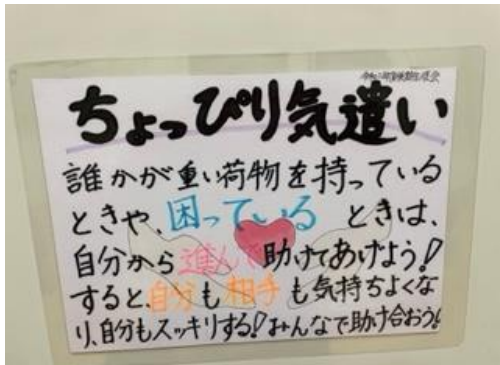 ちょっぴり気遣い
誰かが重い荷物を持っている
ときや、困っている ときは、
自分から進んで助けてあげよう!
すると、自分も相手も気持ちよくな
り、自分もスッキリする!みんなで助け合おう!